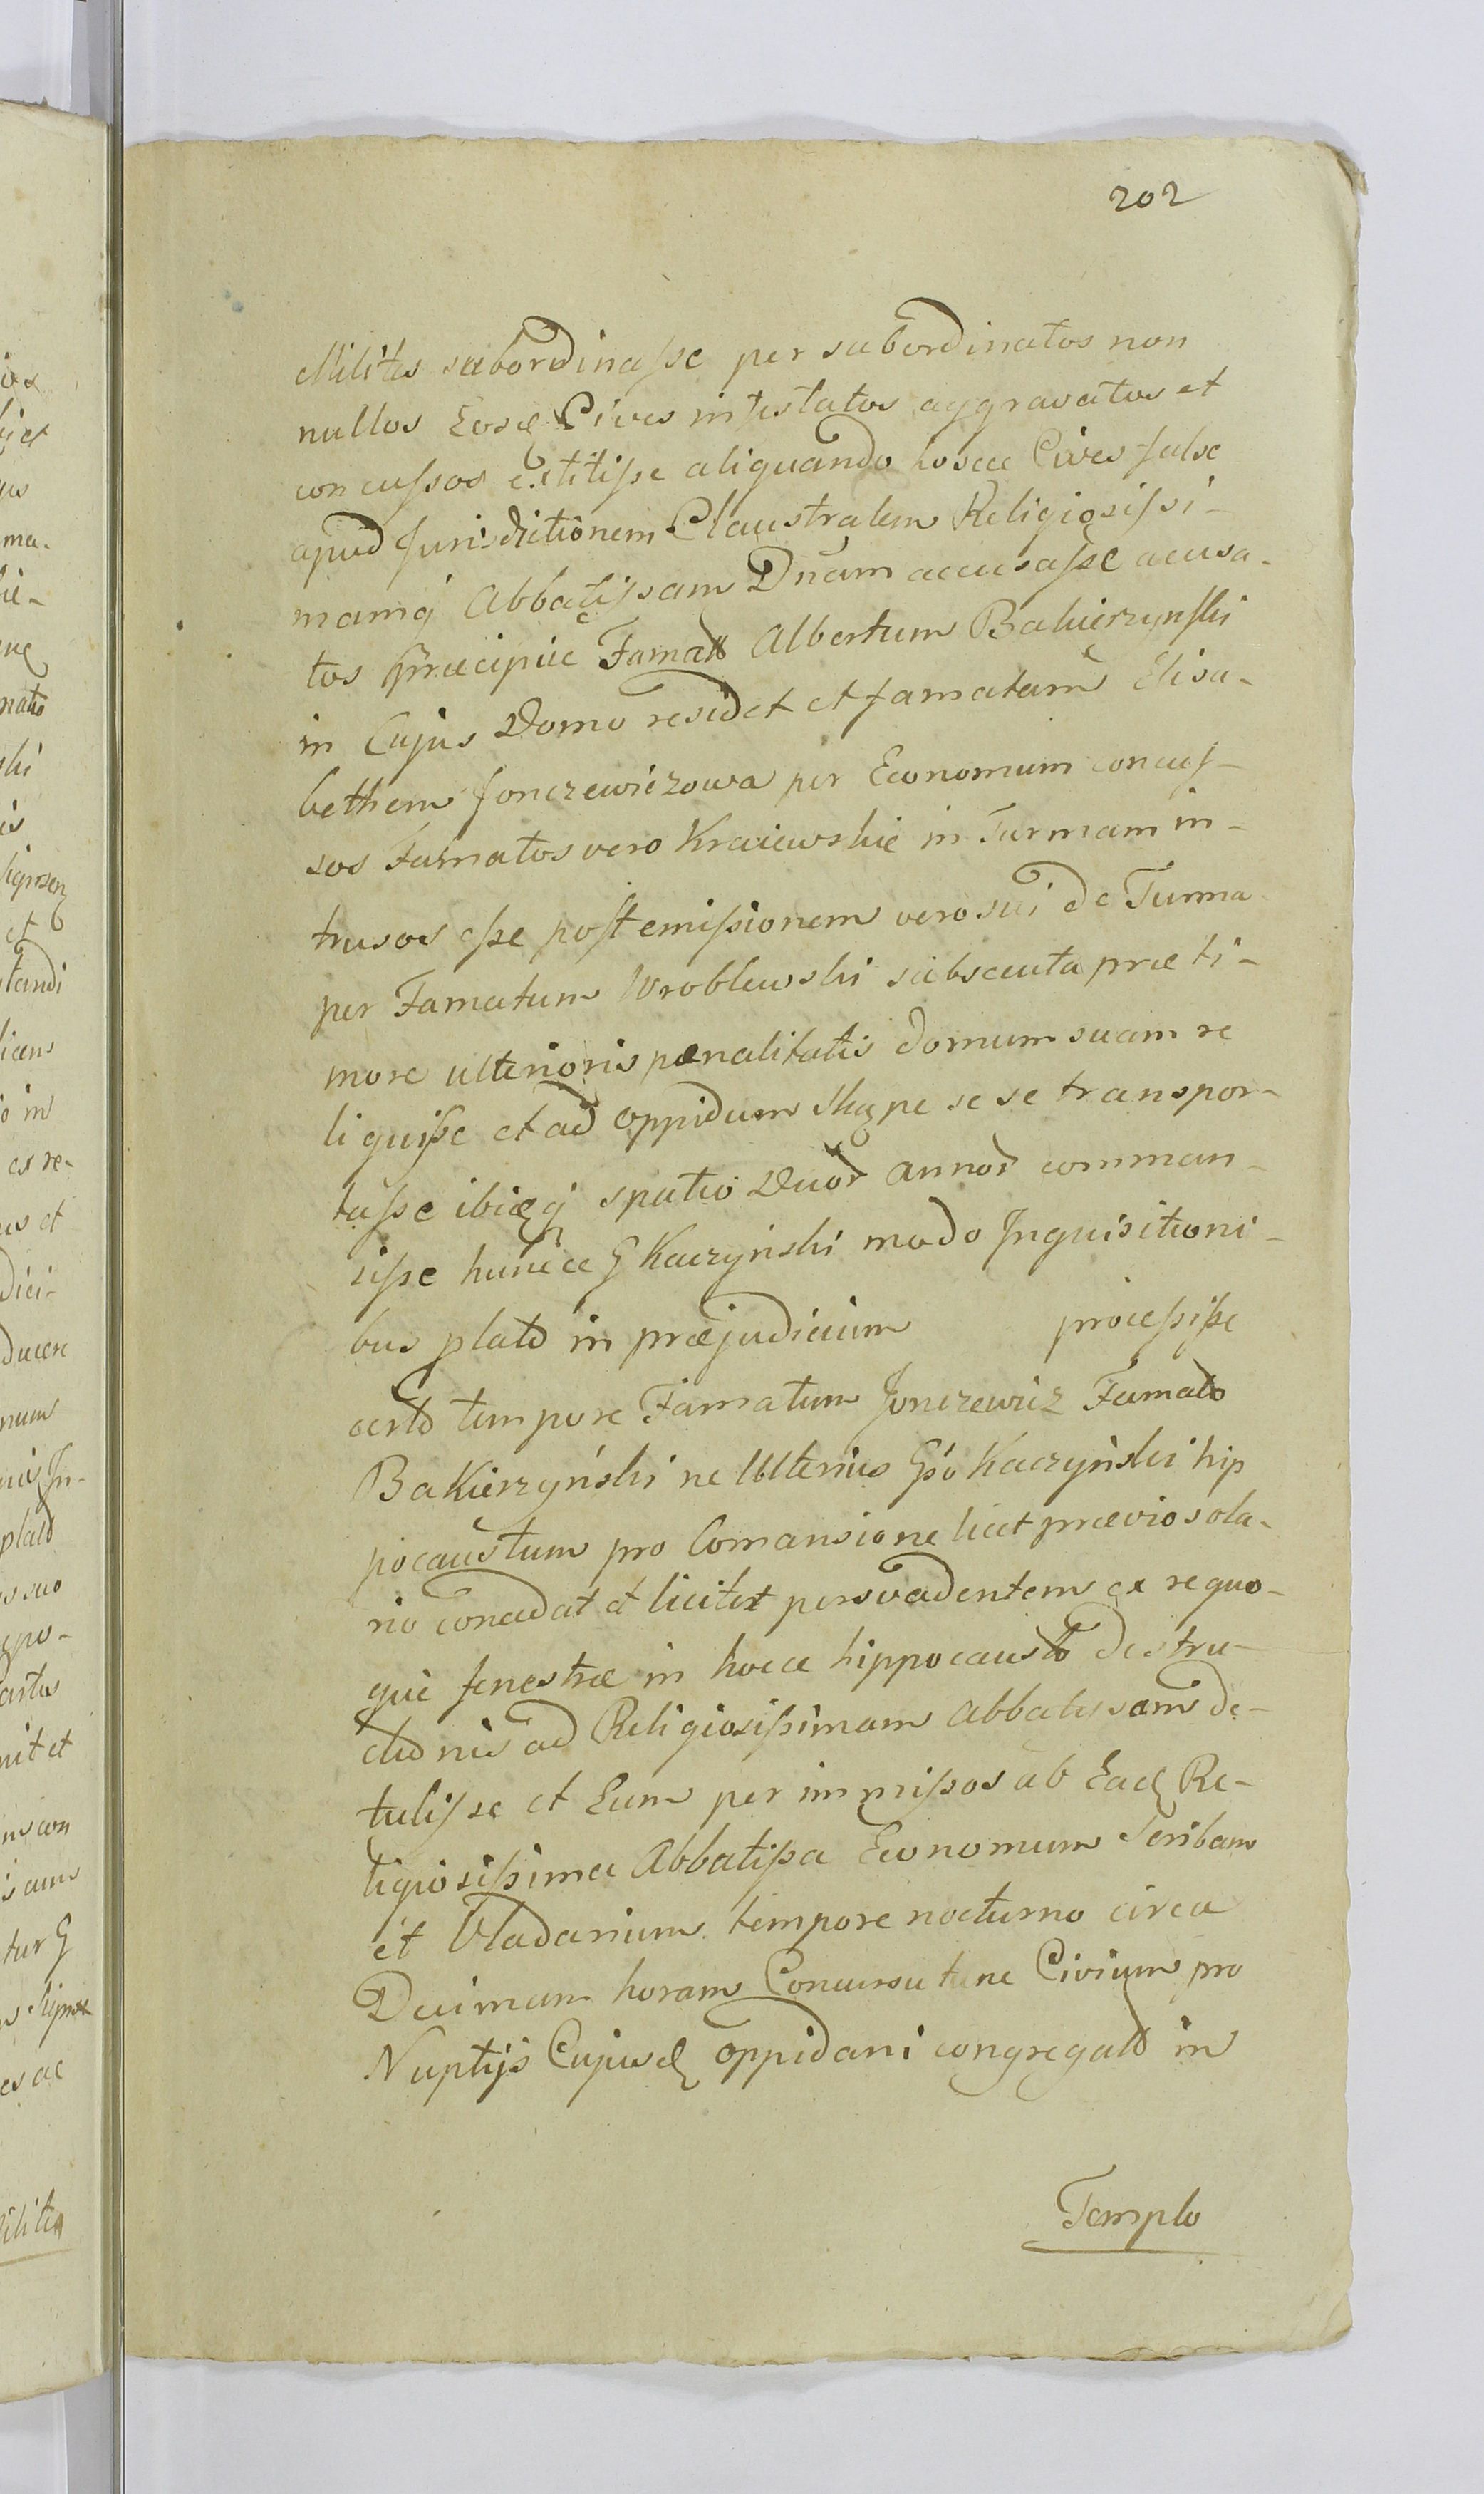 202
Milites subordinasse per subordinatos non
nullos Eosq Cives infestatos aggravatos et
concussos extitisse aliquando hosce Cives false
apud Jurisdictionem Claustralem Religiosissi-
mamq Abbatissam Dnam accusasse accusa-
tos præcipue Famatt Albertum Bakierzynski
in Cujus Domo residet et famatam Elisa-
bethem Jonczewiczowa per Economum concus-
sos Famatos vero Kraiewskie in Turmam in-
trusos esse post emissionem vero sui de Turma
per Famatum Wroblewski subsecuta præ ti-
more ulterioris pœnalitatis domum suam re
liquisse et ad oppidum Skąpe se se transpor-
tasse ibiq spatio Duor annor comman-
sisse huncce G Kaczyński modo Inquisitioni-
bus plato in præjudicium processisse
certo tempore Famatum Jonczewicz Famato
Bakierzyński ne Ulterius Gso Kaczyński hip
pocaustum pro Comansione licet prævio sola-
rio concedat et licitet persvadentem ex re quo-
que fenestræ in hocce hippocausto destru-
ctionis ad Religiosissimam Abbatissam de-
tulisse et Eum per immissos ab Eadq Re-
ligiosissima Abbatissa Economum Scribam
et Vladarium tempore nocturno circa
Decimam horam Concursu tunc Civium pro
Nuptijs Cujusdq oppidani congregato in
Templo